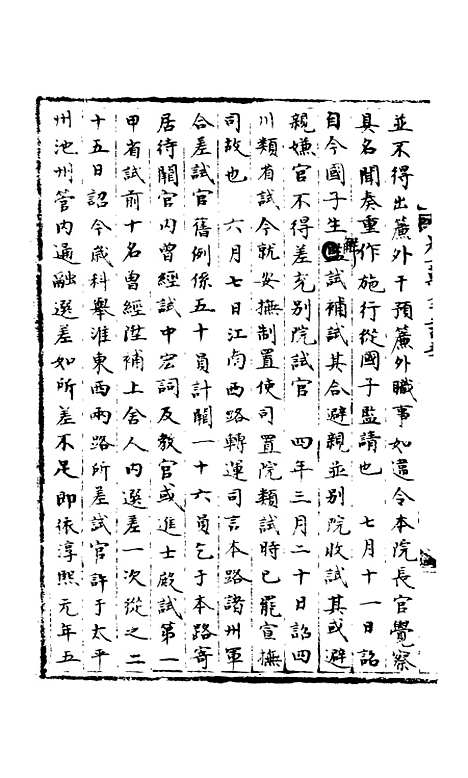 並不得出簾外干預簾外職事如違令本院長官覺察
具名聞奏重作施行從國子監請也　七月十一日詔
自今國子生解試補試其合避親並別院收試其或避
親嫌官不得差充別院試官　四年三月二十日詔四
川類省試今就安撫制置使司置院類試時已罷宣撫
司故也　六月七日江南西路轉運司言本路諸州軍
合差試官舊例係五十員計闕一十六員乞于本路寄
居待闕官內曾經試中宏詞及教官或進士殿試第一
甲省試前十名曾經陞補上舍人內選差一次從之　二
十五日詔今歲科舉淮東西兩路所差試官許于太平
州池州管內通融選差如所差不足即依淳熙元年五